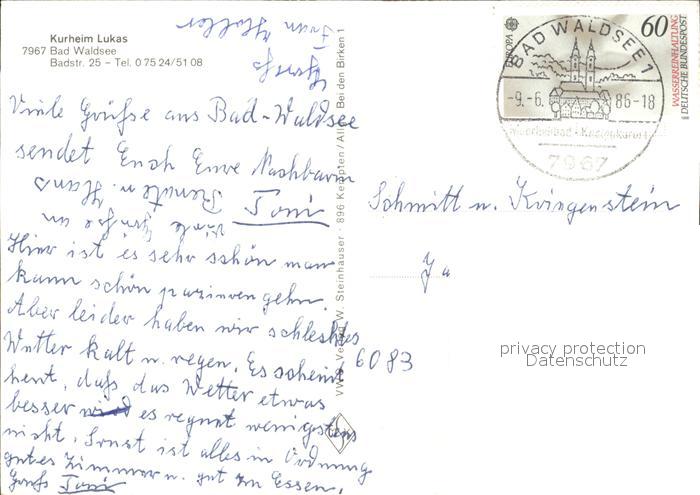 Kurheim Lukas
7967 Bad Waldsee
Badstr. 25 – Tel. 0 75 24/51 08
Frau Müller
Gruß
Viele Grüße aus Bad-Waldsee
sendet Euch Eure Nachbarin
Toni
Viele Grüße an
Renate u. Hans
Hier ist es sehr schön man
kann schön pazieren gehn.
Aber leider haben wir schlechtes
Wetter kalt u. regen. Es scheint
heut, daß das Wetter etwas
besser wird es regnet wenigstens
nicht. Sonst ist alles in Ordnung
gutes Zimmer u. gut zu Essen.
Gruß Toni
VW Verlag W. Steinhauser · 896 Kempten/Allg. Bei den Birken 1
EUROPA
60
WASSERREINHALTUNG
DEUTSCHE BUNDESPOST
BAD WALDSEE 1
-9.-6. 86-18
7967
Schmitt u. Kringenstein
6083
privacy protection
Datenschutz